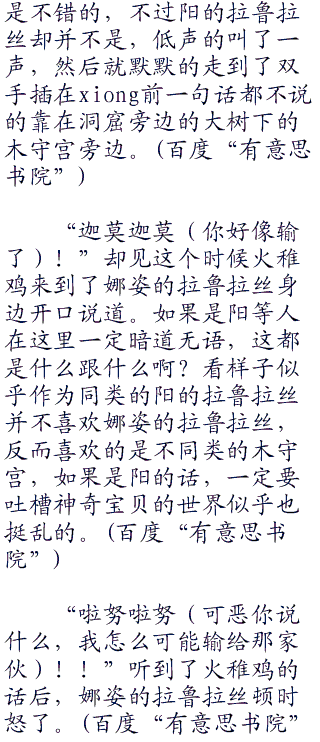 是不错的，不过阳的拉鲁拉
丝却并不是，低声的叫了一
声，然后就默默的走到了双
手插在xiong前一句话都不说
的靠在洞窟旁边的大树下的
木守宫旁边。(百度“有意思
书院”)
“迦莫迦莫（你好像输
了）！”却见这个时候火稚
鸡来到了娜姿的拉鲁拉丝身
边开口说道。如果是阳等人
在这里一定暗道无语，这都
是什么跟什么啊？看样子似
乎作为同类的阳的拉鲁拉丝
并不喜欢娜姿的拉鲁拉丝，
反而喜欢的是不同类的木守
宫，如果是阳的话，一定要
吐槽神奇宝贝的世界似乎也
挺乱的。(百度“有意思书
院”)
“啦努啦努（可恶你说
什么，我怎么可能输给那家
伙）！！”听到了火稚鸡的
话后，娜姿的拉鲁拉丝顿时
怒了。(百度“有意思书院”